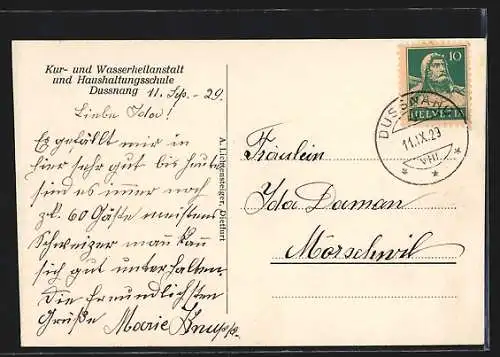 Kur- und Wasserheilanstalt
und Haushaltungsschule
Dussnang 11. Sep. - 29.
Liebe Ida!
Es gefällt mir in
hier sehr gut bis heute
sind es immer noch
zk. 60 Gäste meistens
Schweizer man kann
sich gut unterhalten
Die freundlichsten
Grüße Marie Knupp.
A. Lichtensteiger, Dietfurt
10
HELVETIA
DUSSNANG
11.IX.29
VIII
Fräulein
Ida Daman
Mörschwil